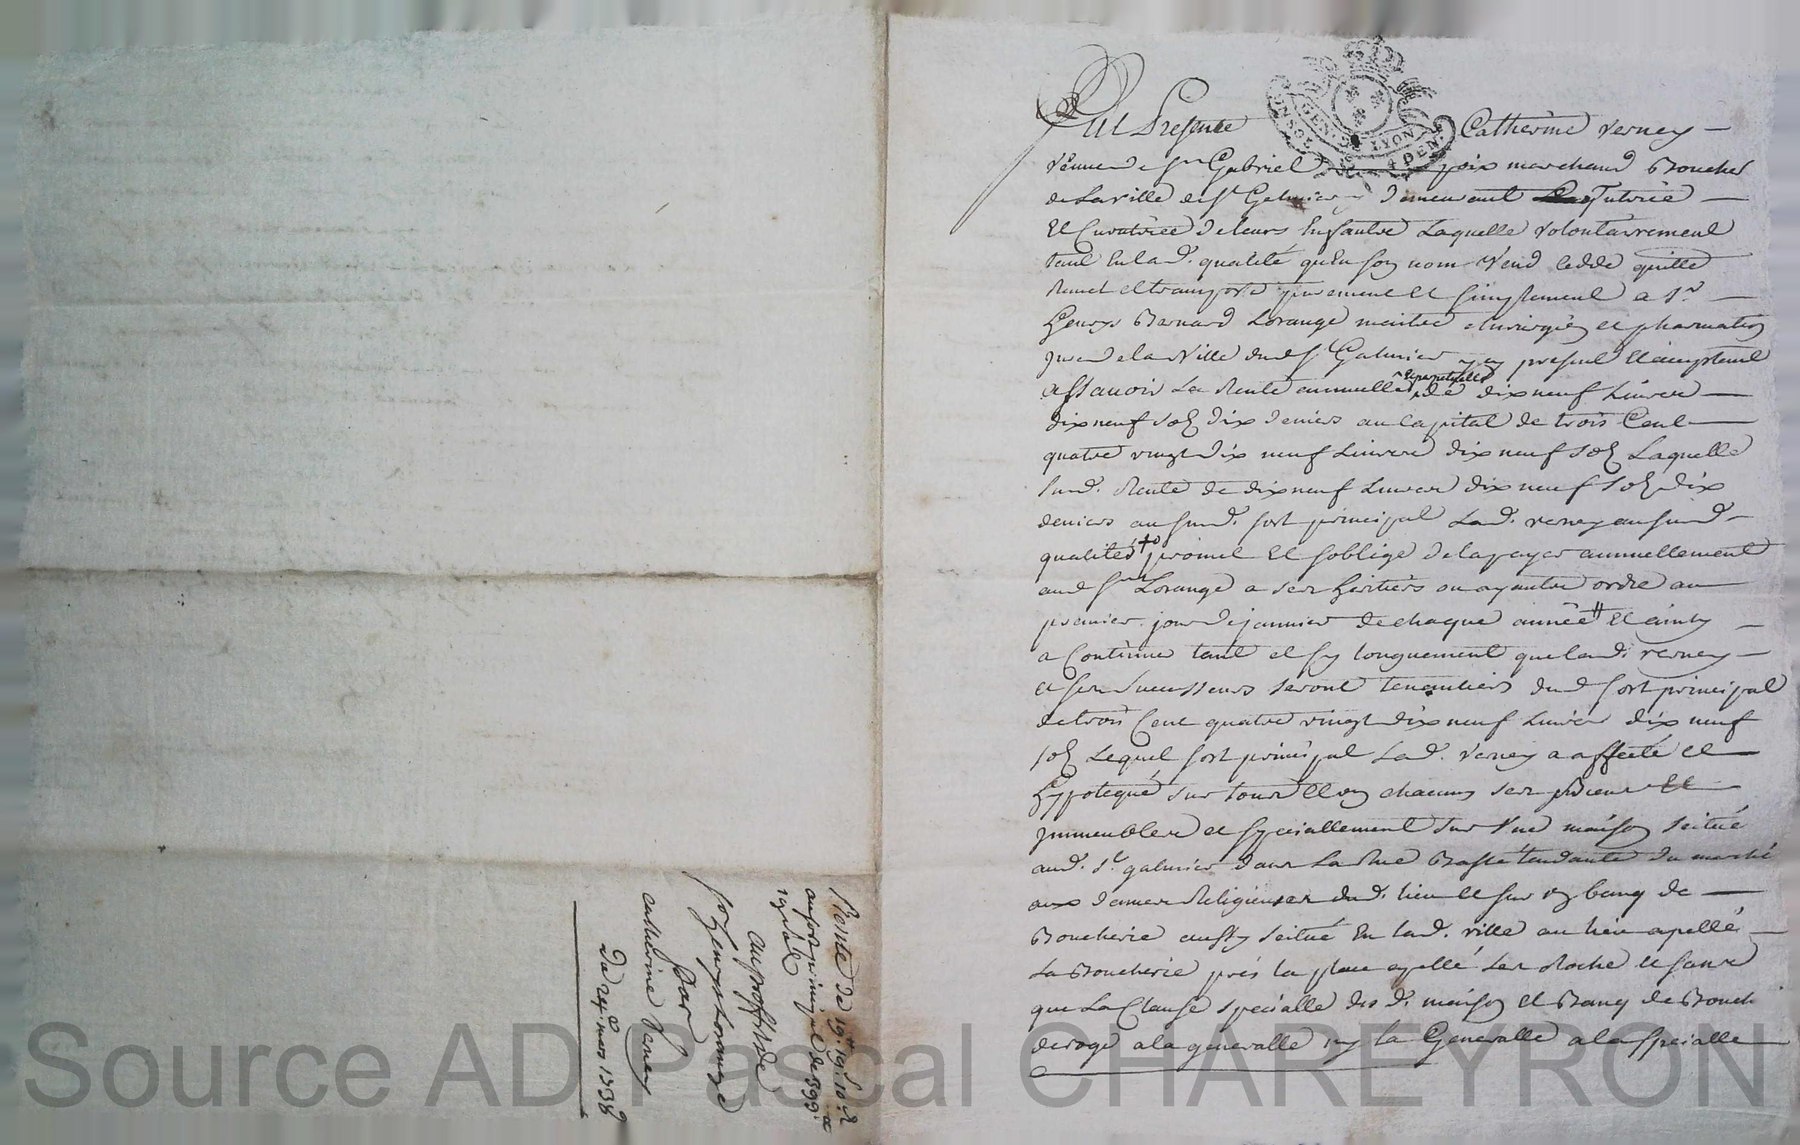 Fut Presente Catherine Verney
veuve de Sr Gabriel poix marchand Boucher
de La ville de St Galmier y demeurant Tutrice
Et Curatrice de leurs Enfants Laquelle volontairement
tant En lad. qualité qu'En son nom Vend cedde quitte
remet et transporte purement et simplement a Sr
henry Bernard Lorange maitre chirurgien et pharmatien
Juré de la ville dud St Galmier y present Et acceptant
assavoir La Rente annuelle et perpetuelle de dix neuf Livres
dix neuf sols dix deniers au capital de trois Cent
quatre vingt dix neuf Livres dix neuf sols Laquelle
susd. Rente de dix neuf Livres dix neuf sols dix
deniers au susd. sort principal Lad. verney aususd
qualités promet Et soblige de la payer annuellement
aud Sr Lorange a ses heritiers ou ayants ordre au
premier jour de janvier de chaque année Et ainsy
a Continuer tant et sy longuement que lad. verney
et ses Successeurs seront tenanciers dud sort principal
de trois Cent quatre vingt dix neuf Livres dix neuf
sols Lequel sort principal Lad. verney a affecté et
hypotequé sur tous Et un chacuns ses biens Et
Immeubles et speciallement sur Une maison scitué
aud. St galmier dans La Rue Basse tendante du marché
aux dames Religieuses dud. lieu et sur un bancq de
Boucherie aussy scitué En lad. ville au lieu apellé
La Boucherie prés la place apellé Les Roche et sans
que La Clause specialle des d. maison et Bancq de Bouche
deroge a la generalle ny la Generalle a la specialle
Rente de 19tt 19s 10d
au sort principal de 399tt
19 sols
au proffit de
sr henry Lorange
Par
catherine Verney
Du 24e mars 1738
GEN. DE LYON
DEN.
Source AD Pascal CHAREYRON